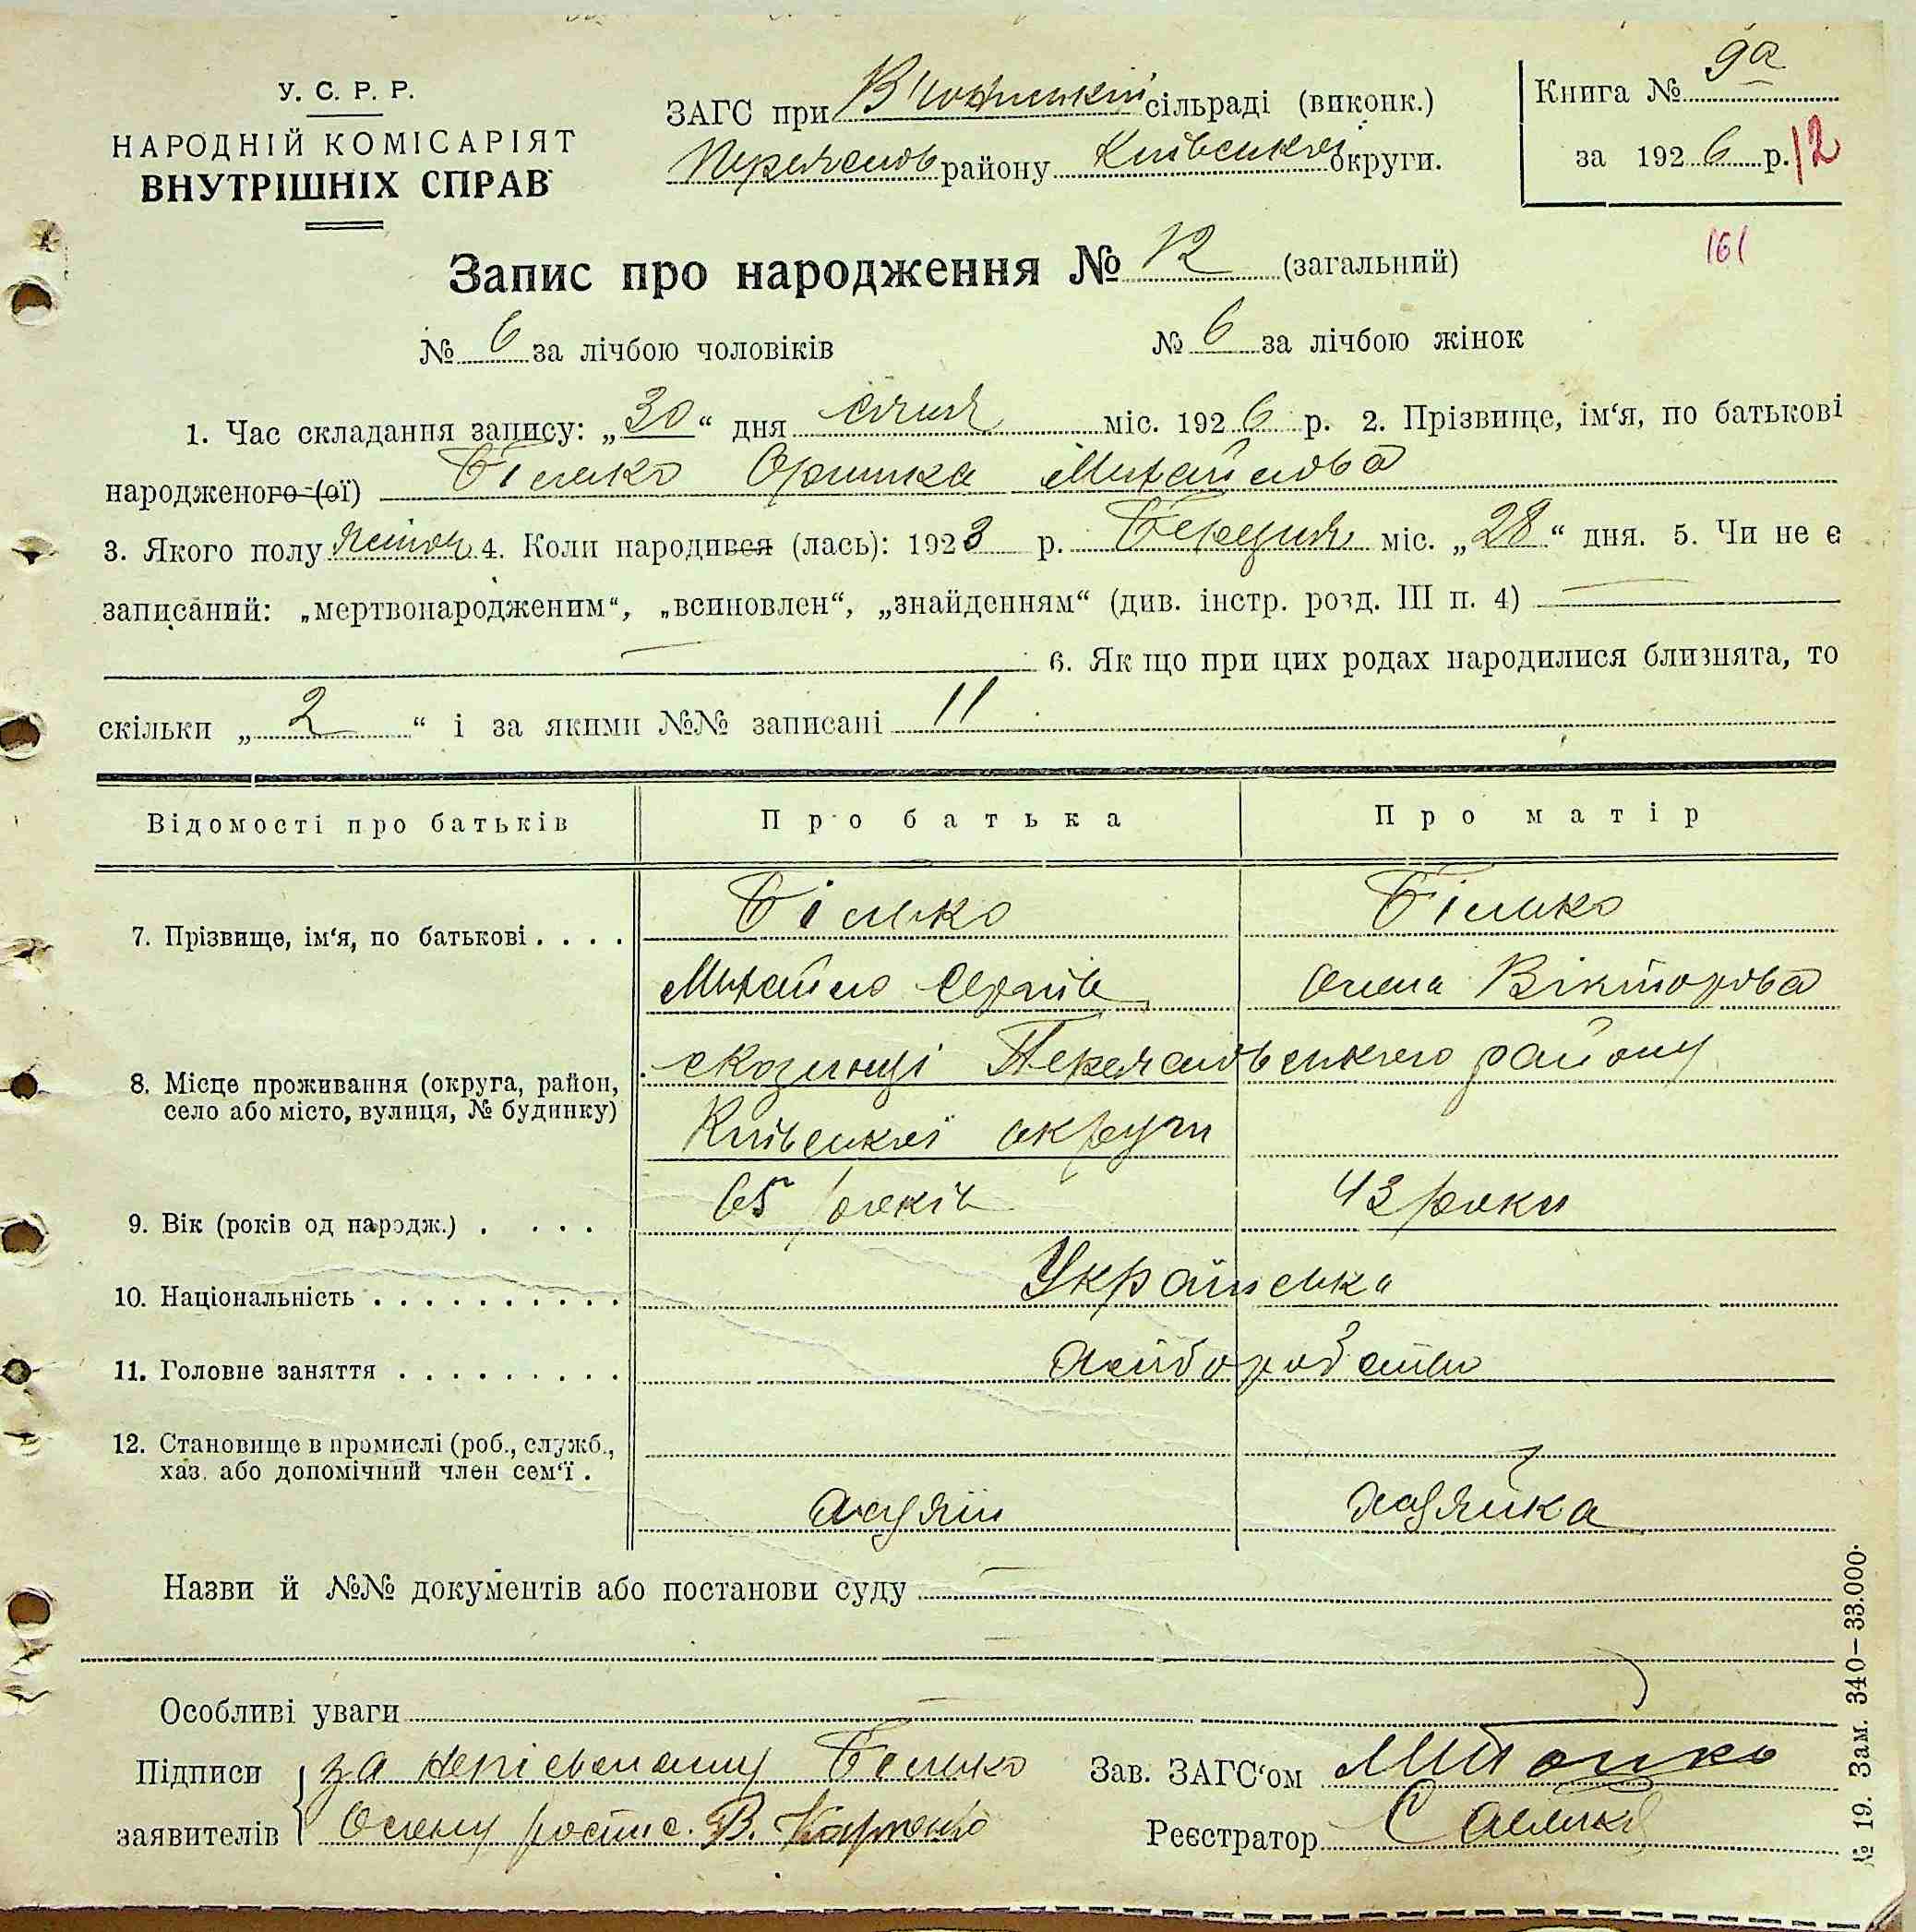 У. С. Р. Р.
НАРОДНІЙ КОМІСАРІЯТ
ВНУТРІШНІХ СПРАВ
ЗАГС при сільраді (виконк.)
Переяслов району Київської округи.
Книга № 9а
за 1926 р. 12
161
Запис про народження № 12 (загальний)
№ 6 за лічбою чоловіків № 6 за лічбою жінок
1. Час складання запису: „30“ дня січня міс. 1926 р. 2. Прізвище, ім‘я, по батькові
народженого (ої) Білько Оришка Михайлова
3. Якого полу жіноч. 4. Коли народився (лась): 1923 р. Березня міс. „28“ дня. 5. Чи не є
записаний: „мертвонародженим“, „всиновлен“, „знайденням“ (див. інстр. розд. III п. 4) —
— 6. Як що при цих родах народилися близнята, то
скільки „2“ і за якими №№ записані 11
Відомості про батьків Про батька Про матір
7. Прізвище, ім‘я, по батькові . . . . Білько Білько
Михайло Сергіїв Олена Вікторова
8. Місце проживання (округа, район,
село або місто, вулиця, № будинку)
Переясловського району
Київської округи
9. Вік (років од народж.) . . . . 65 років 43 роки
10. Національність . . . . . . . . . . Українська
11. Головне заняття . . . . . . . . . Хліборобство
12. Становище в промислі (роб., служб.,
хаз. або допомічний член сем‘ї .
хазяїн хазяйка
Назви й №№ документів або постанови суду —
—
Особливі уваги —
Підписи за неписьменну Білько
заявителів Олену роспис. В. Карпенко
Зав. ЗАГС‘ом
Реєстратор
№ 19. Зам. 340—33.000.